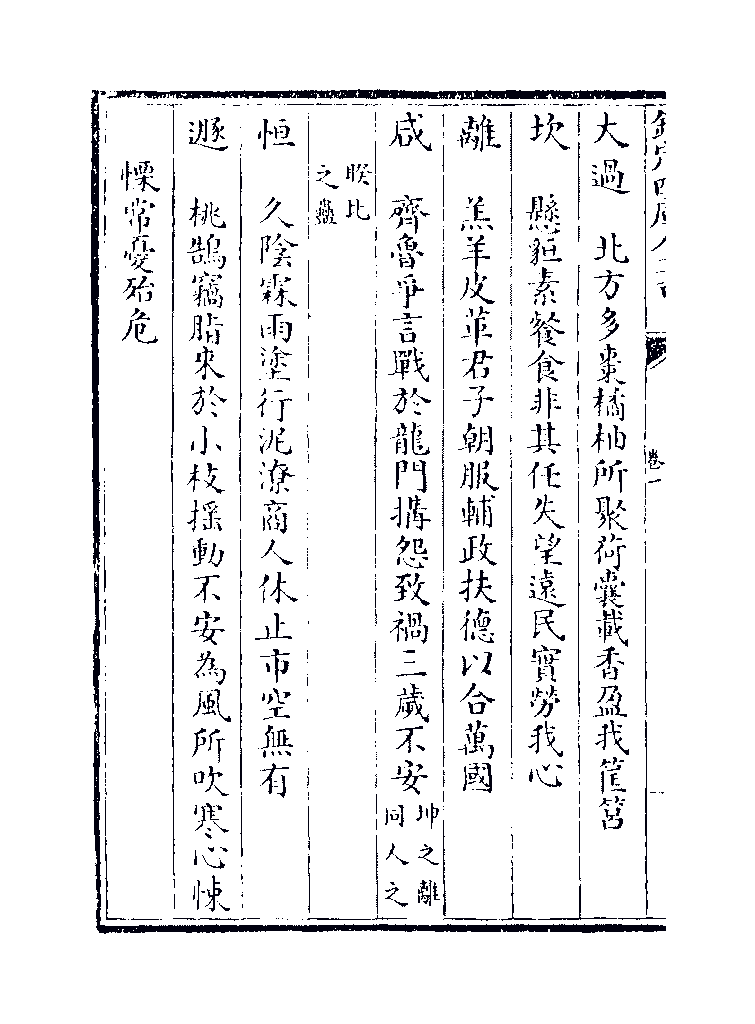 大過　北方多棗橘柚所聚荷囊載香盈我筐筥
坎　懸貆素餐食非其任失望遠民實勞我心
離　羔羊皮革君子朝服輔政扶德以合萬國
咸　齊魯爭言戰於龍門搆怨致禍三歲不安坤之離同人之
睽比之蠱
恒　久陰霖雨塗行泥潦商人休止市空無有
遯　桃鵲竊脂來於小枝搖動不安為風所吹寒心悚
慄常憂殆危
卷一